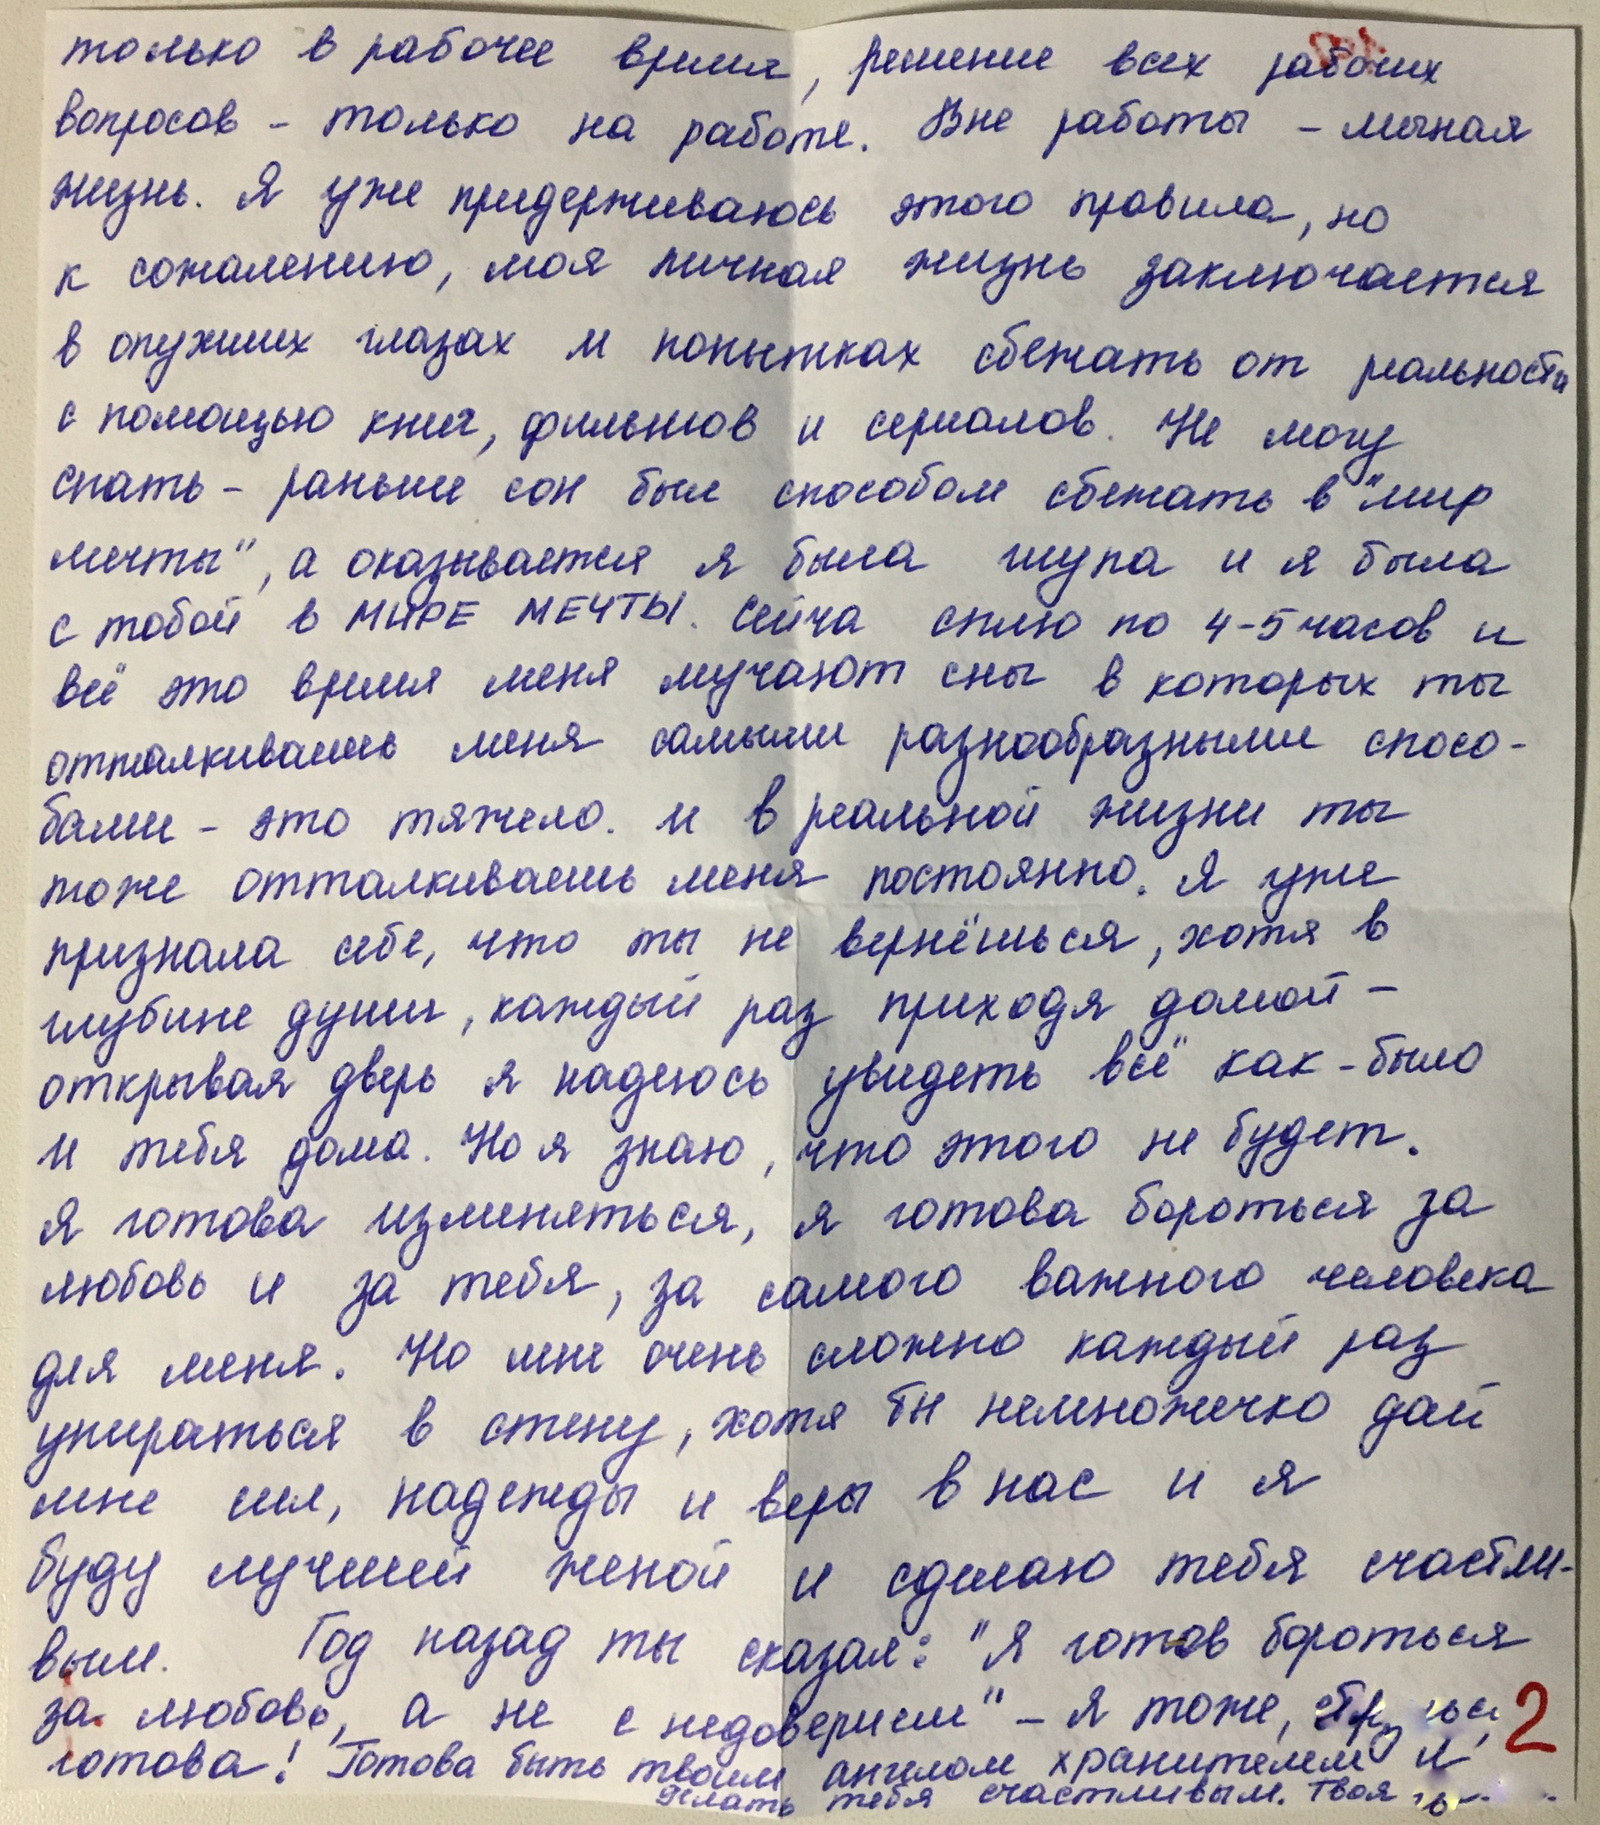 только в рабочее время, решение всех рабочих
вопросов - только на работе. Вне работы - личная
жизнь. Я уже придерживаюсь этого правила, но
к сожалению, моя личная жизнь заключается
в опухших глазах и попытках сбежать от реальности
с помощью книг, фильмов и сериалов. Не могу
спать - раньше сон был способом сбежать в "мир
мечты", а оказывается я была глупа и я была
с тобой в МИРЕ МЕЧТЫ. Сейча сплю по 4-5 часов и
всё это время меня мучают сны в которых ты
отталкиваешь меня самыми разнообразными спосо-
бами - это тяжело. И в реальной жизни ты
тоже отталкиваешь меня постоянно. Я уже
признала себе, что ты не вернёшься, хотя в
глубине души, каждый раз приходя домой -
открывая дверь я надеюсь увидеть всё как-было
и тебя дома. Но я знаю, что этого не будет.
Я готова изменяться, я готова бороться за
любовь и за тебя, за самого важного человека
для меня. Но мне очень сложно каждый раз
упираться в стену, хотя бы немножечко дай
мне сил, надежды и веры в нас и я
буду лучшей женой и сделаю тебя счастли-
вым. Год назад ты сказал: "Я готов бороться
за любовь, а не с недоверием" - Я тоже,
готова! Готова быть твоим ангелом хранителем и
делать тебя счастливым. Твоя
2